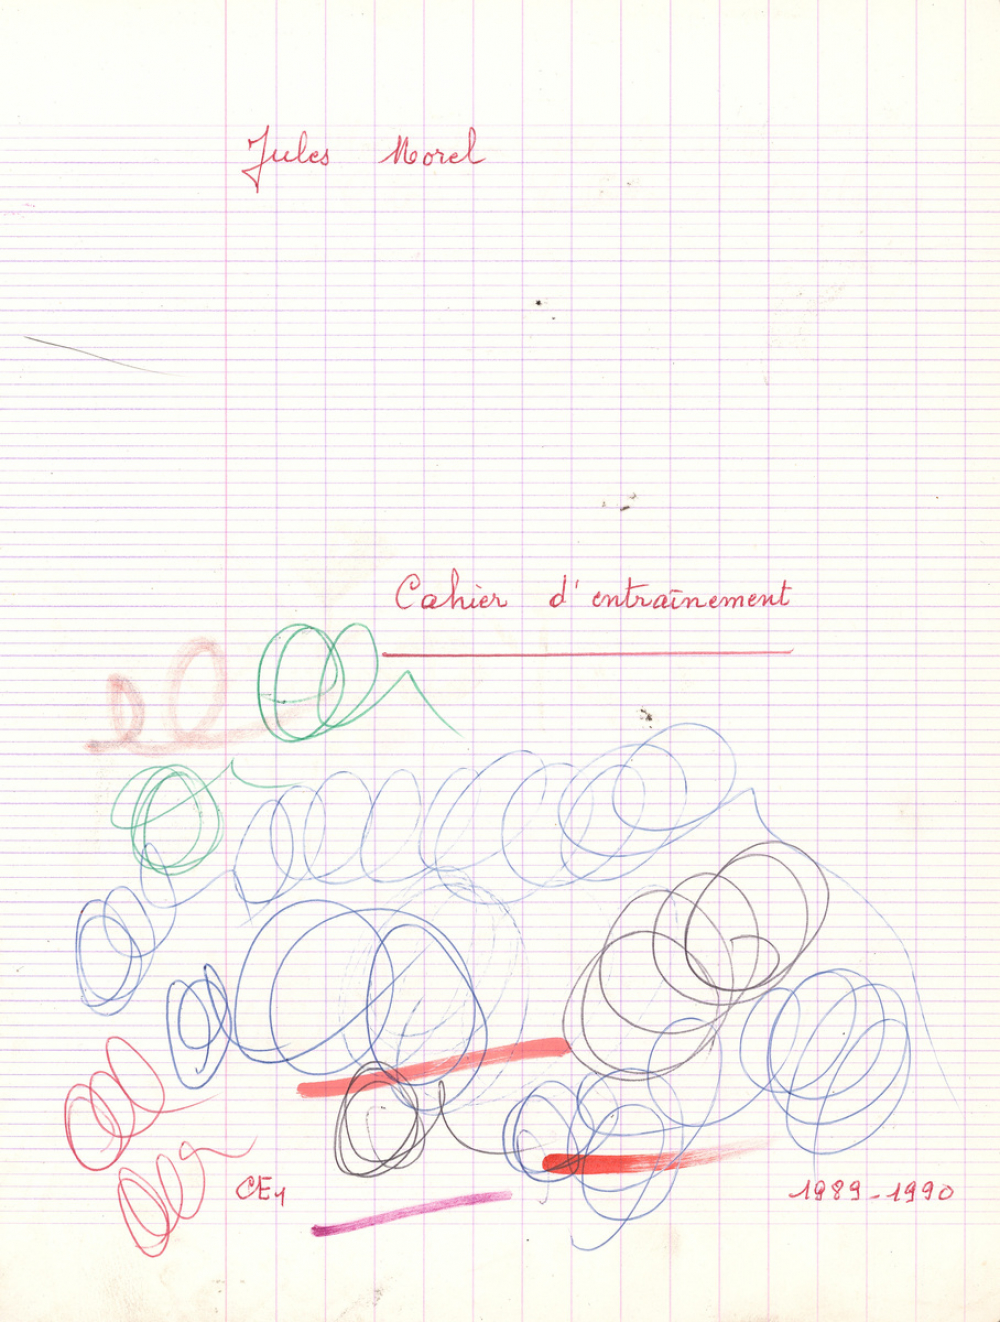 Jules Morel
Cahier d'entraînement
CE1
1989-1990